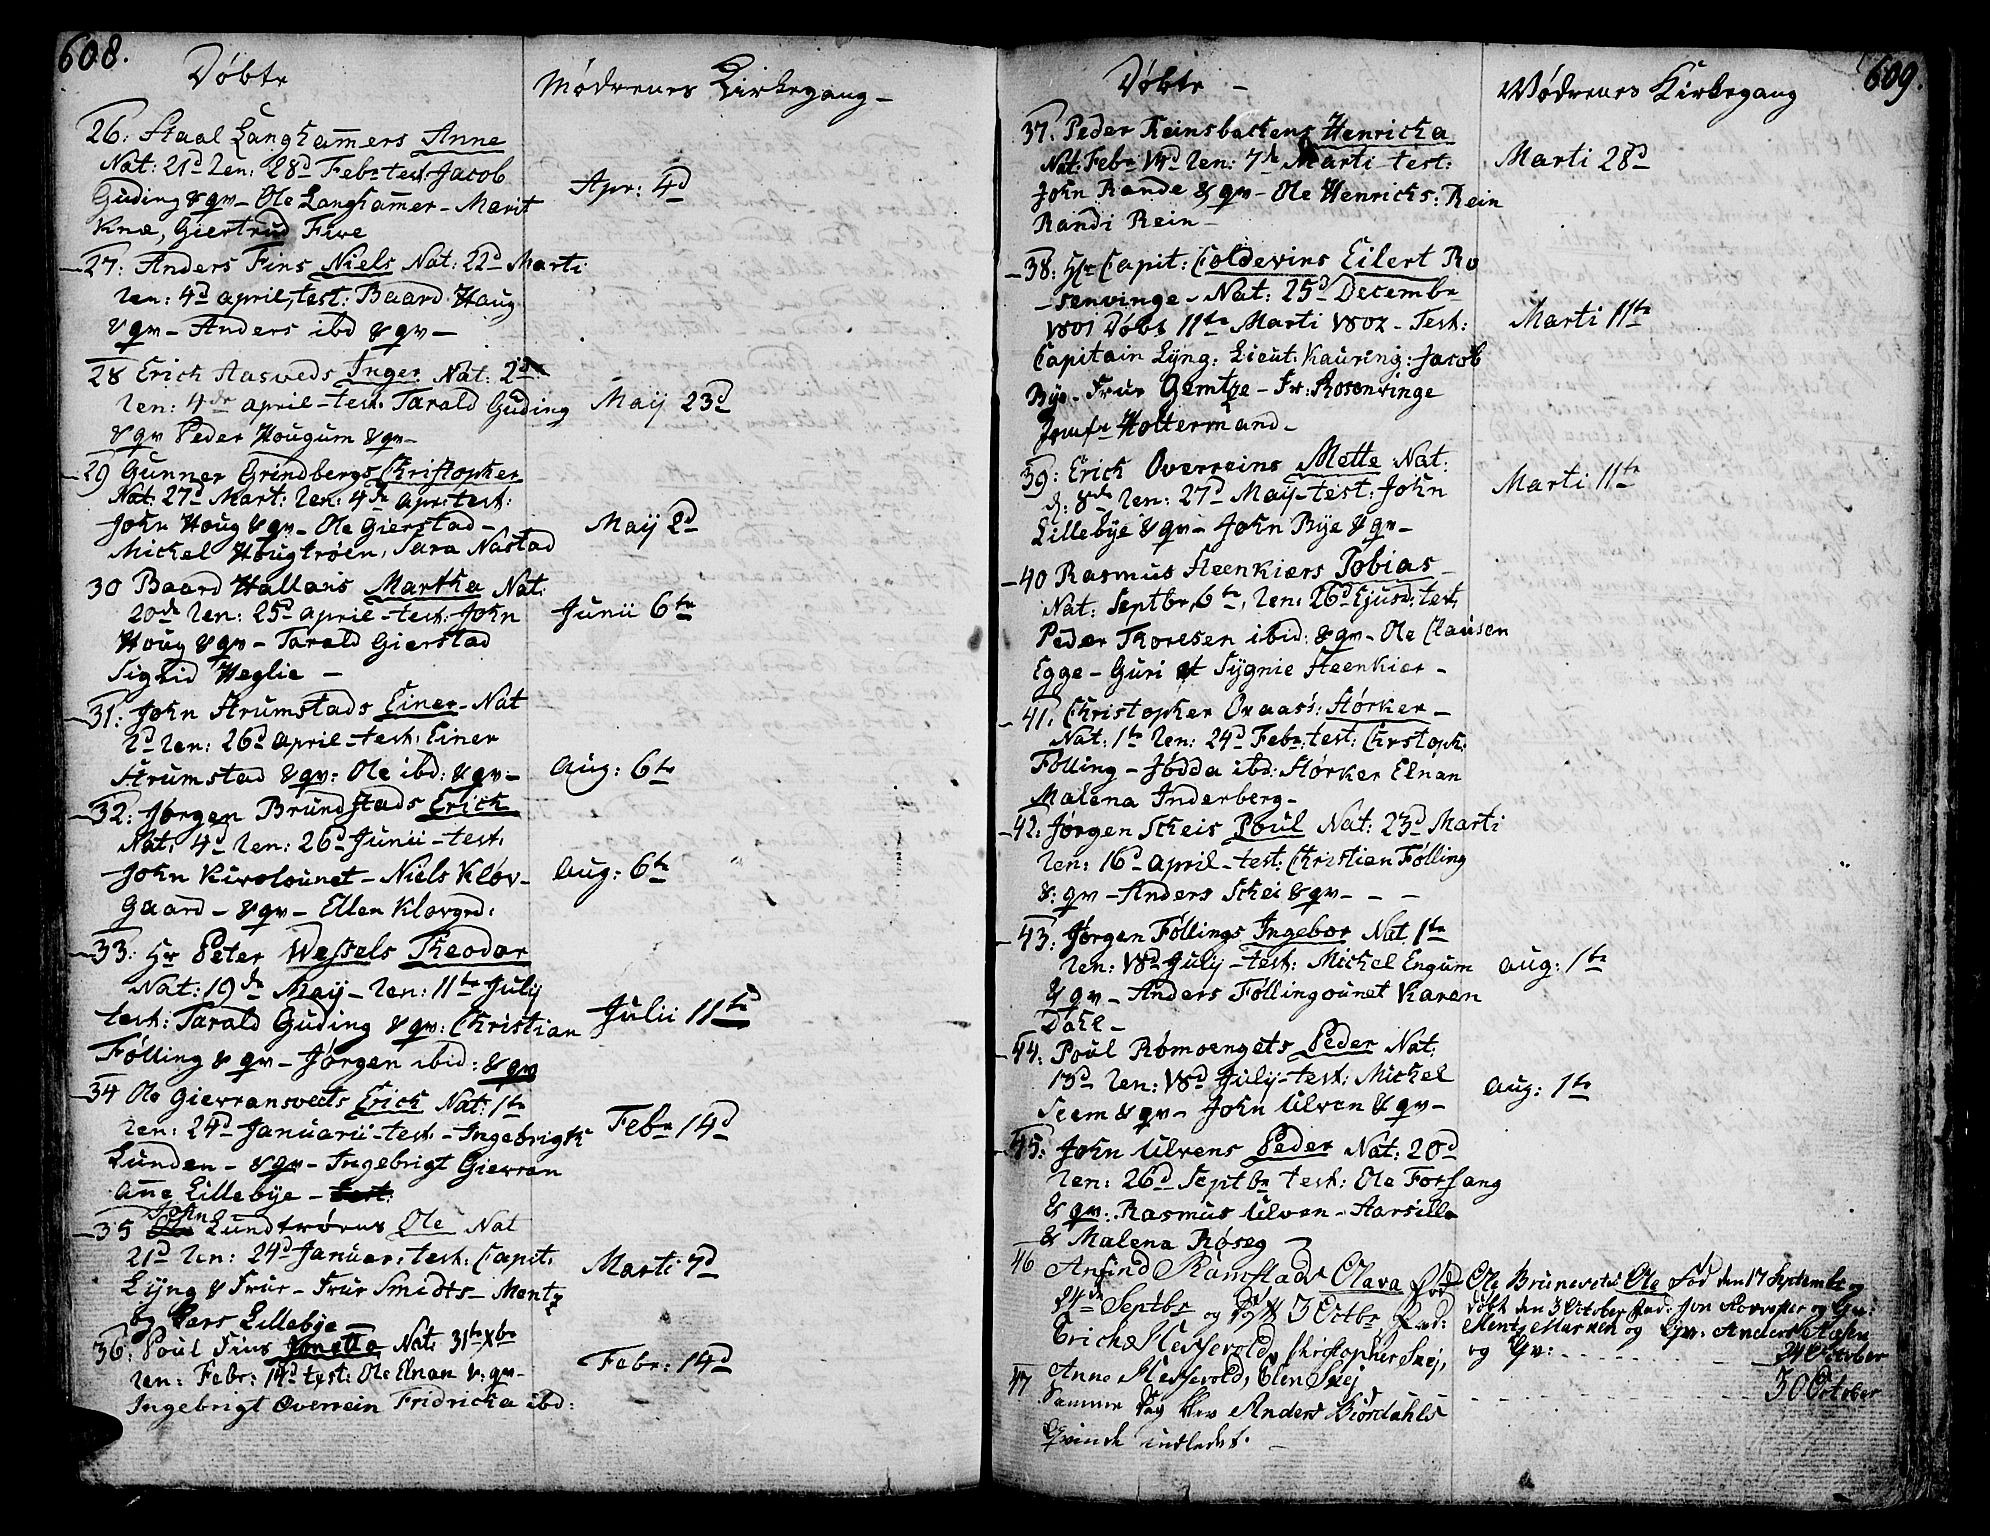 608.
Døbte
Mødrenes Kirkegang -
26: Staal Langhamers Anne
Nat: 21d ren: 28d Febr test: Jacob
Guding & qv - Ole Langhamer - Marit
Knæ, Giertrud Five
Apr: 4d
27: Anders Fins Niels Nat: 22d Marti
ren: 4d april, test: Baard Haug
& qv - Anders ibd & qv -
28 Erich Aasveds Inger Nat: 2d
ren: 4de april - test: Tarald Guding
& qv Peder Hougum & qv -
Maij 23d
29 Gunner Grindbergs Christopher
Nat: 27d Mart: ren: 4de apr: test:
John Houg & qv - Ole Gierstad -
Michel Hougtrøen, Sara Nastad
Maij 2d
30 Baard Hallans Martha Nat:
20de ren: 25d april - test: John
Houg & qv - Tarald Gierstad
Sigrid Heglie -
Junii 6te
31: John Strumstads Einer - Nat
2d ren: 26d april - test: Einer
Strumstad & qv: Ole ibd: & qv -
Aug: 6te
32: Jørgen Brundstads Erich
Nat: 4d ren: 26d Junii - test:
John Kirolounet - Niels Kløv-
Gaard - & qv - Ellen Klovgrd:
Aug: 6te
33: Hr Peter Wessels Theodor
Nat: 19de Maij - ren: 11te Julij
test: Tarald Guding & qv: Christian
Følling & qv - Jørgen ibid: & qv
Julii 11te
34 Ole Gievransveets Erich Nat: 1te
ren: 24d Januarii - test - Ingebrigt
Lunden - & qv - Ingebrigt Gievran
Ane Lillebye - test:
Febr 14d
35 John Lundtrøens Ole Nat
21d ren: 24d Januar: test: Capit:
Lyng & Frue - Frue Smidts - Mentz
og Lars Lillebye -
Marti 7d
36: Poul Fins Jonetta Nat: 31te Xbr
ren: Febr: 14d test: Ole Elnan & qv -
Ingebrigt Overrein Fridricka ibd:
Febr: 14d
609.
Døbte -
Mødrenes Kirkegang
37: Peder Reinsbackens Henricka
Nat: Febr ren: 7de Marti test:
John Rande & qv - Ole Henrichs: Rein
Randi Rein -
Marti 28d
38: Hr Capit: Coldevins Eilert Ro
- senvinge - Nat: 25d Decembr
1801 Døbt 11te Marti 1802 - Test:
Capitain Lyng: Lieut: Kauring: Jacob
Bye - Frue Gemtze - Fr: Rosenvinge
Jomfr Holtermand -
Marti 11te
39: Erich Overreins Mette Nat:
d: 8de ren: 27d Maij - test: John
Lillebye & qv - John Bye & qv -
Marti 11te
40 Rasmus Steenkiers Tobias -
Nat: Septbr 6te, ren: 26d Ejusd: test:
Peder Thoresen ibid: & qv - Ole Clausen
Egge - Guri et Sygnie Steenkier -
41: Christopher Ovaas: Størker -
Nat: 1te ren: 24d Febr: test: Chrstoph:
Følling - Jødda ibd: Størker Elnan
Malena Inderberg -
42: Jørgen Scheis Poul Nat: 23d Marti
ren: 16d april - test: Christian Følling
& qv - Anders Schei & qv - - -
43: Jørgen Føllings Ingebor Nat 1te
ren: 18d Julij - test: Michel Engum
& qv - Anders Føllingounet Karen
Dahl -
Aug: 1te
44: Poul Rømoengets Peder Nat:
13d ren: 18d Julij - test: Michel
Seem & qv - John Ulven & qv -
Aug: 1te
45: John Ulvens Peder Nat: 20d
ren: 26d Septbr test: Ole Forsang
& qv: Rasmus Ulven -
& Malena Røseg
46 Anfind Ramstads Olava fød
Septbr og Døbt 3 Octbr fad:
Erich Christopher Snej,
Anne Elen Snej
47 Samme Dag blev Anders Biørdahls
Qvinde indledet. -
Ole Brunevets Ole Fød den 17 Septembr og
døbt den 3 October fad: Jon og Qv:
Mentz og Qv: Anders
og Qv: - - - - - - 24 October
30 October